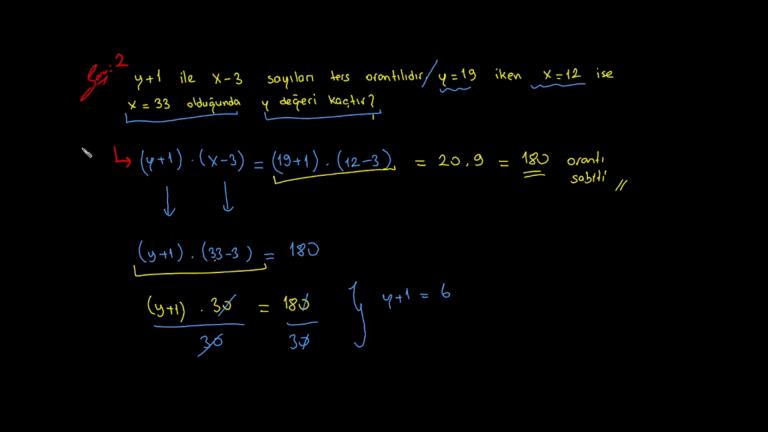 Soru: 2
y+1 ile x-3 sayıları ters orantılıdır / y=19 iken x=12 ise
x = 33 olduğunda y değeri kaçtır?
(y+1) . (x-3) = (19+1) . (12-3) = 20.9 = 180 orantı
sabiti //
(y+1) . (33-3) = 180
(y+1) . 30 = 180 } y+1 = 6
30 30